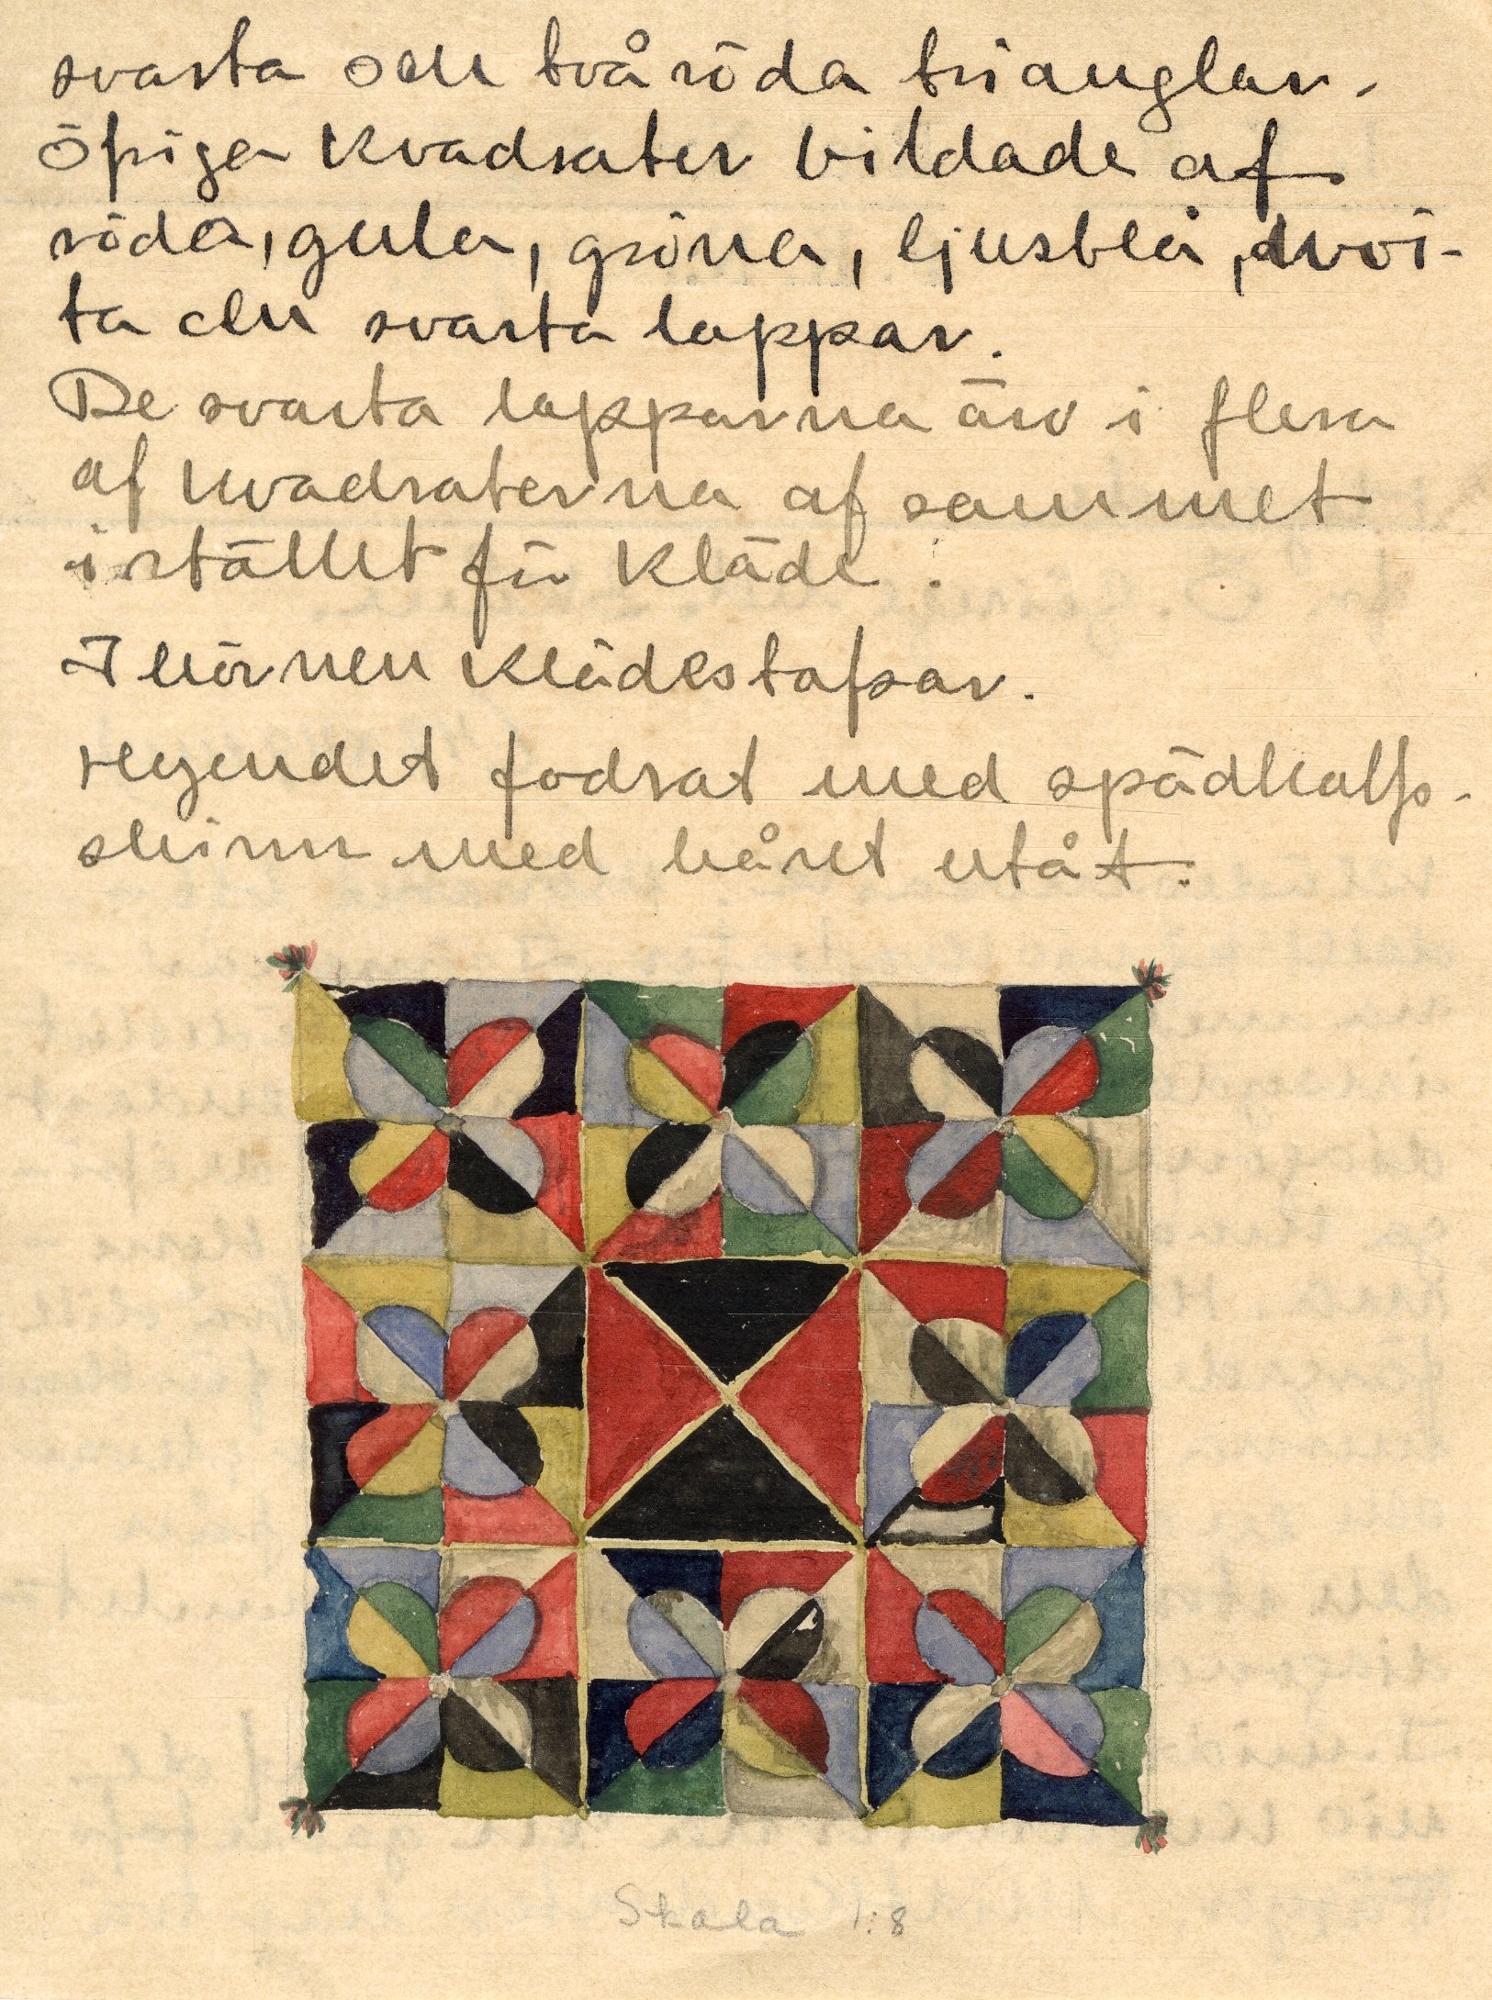 svarta och två röda trianglar.
öfriga kvadrater bildade af
röda, gula, gröna, ljusblå, hvi-
ta och svarta lappar.
De svarta lapparna äro i flera
af kvadraterna af sammet
istället för kläde.
I hörnen klädestofsar.
Hyendet fodrat med spädkalfs-
skinn med håret utåt.
Skala 1:8